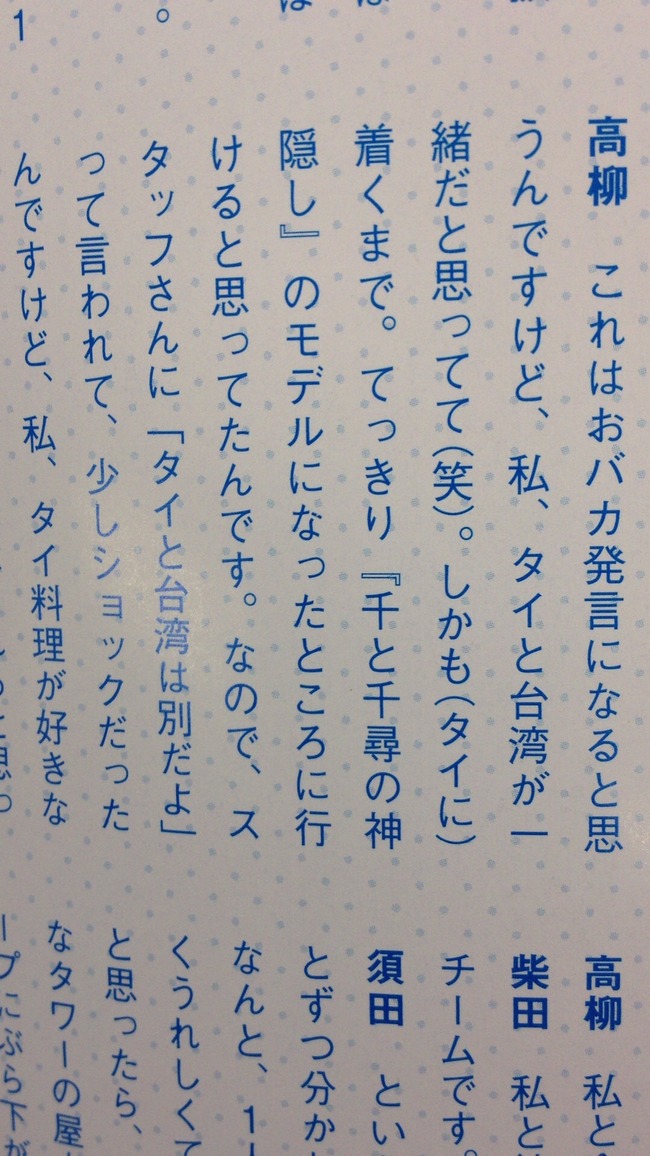 高柳　これはおバカ発言になると思
うんですけど、私、タイと台湾が一
緒だと思ってて(笑)。しかも(タイに)
着くまで。てっきり『千と千尋の神
隠し』のモデルになったところに行
けると思ってたんです。なので、ス
タッフさんに「タイと台湾は別だよ」
って言われて、少しショックだった
んですけど、私、タイ料理が好きな
高柳　私と
柴田　私と
チームです。
須田　とい
とずつ分か
なんと、1
くうれしくて
と思ったら、
なタワーの屋
ープにぶら下が